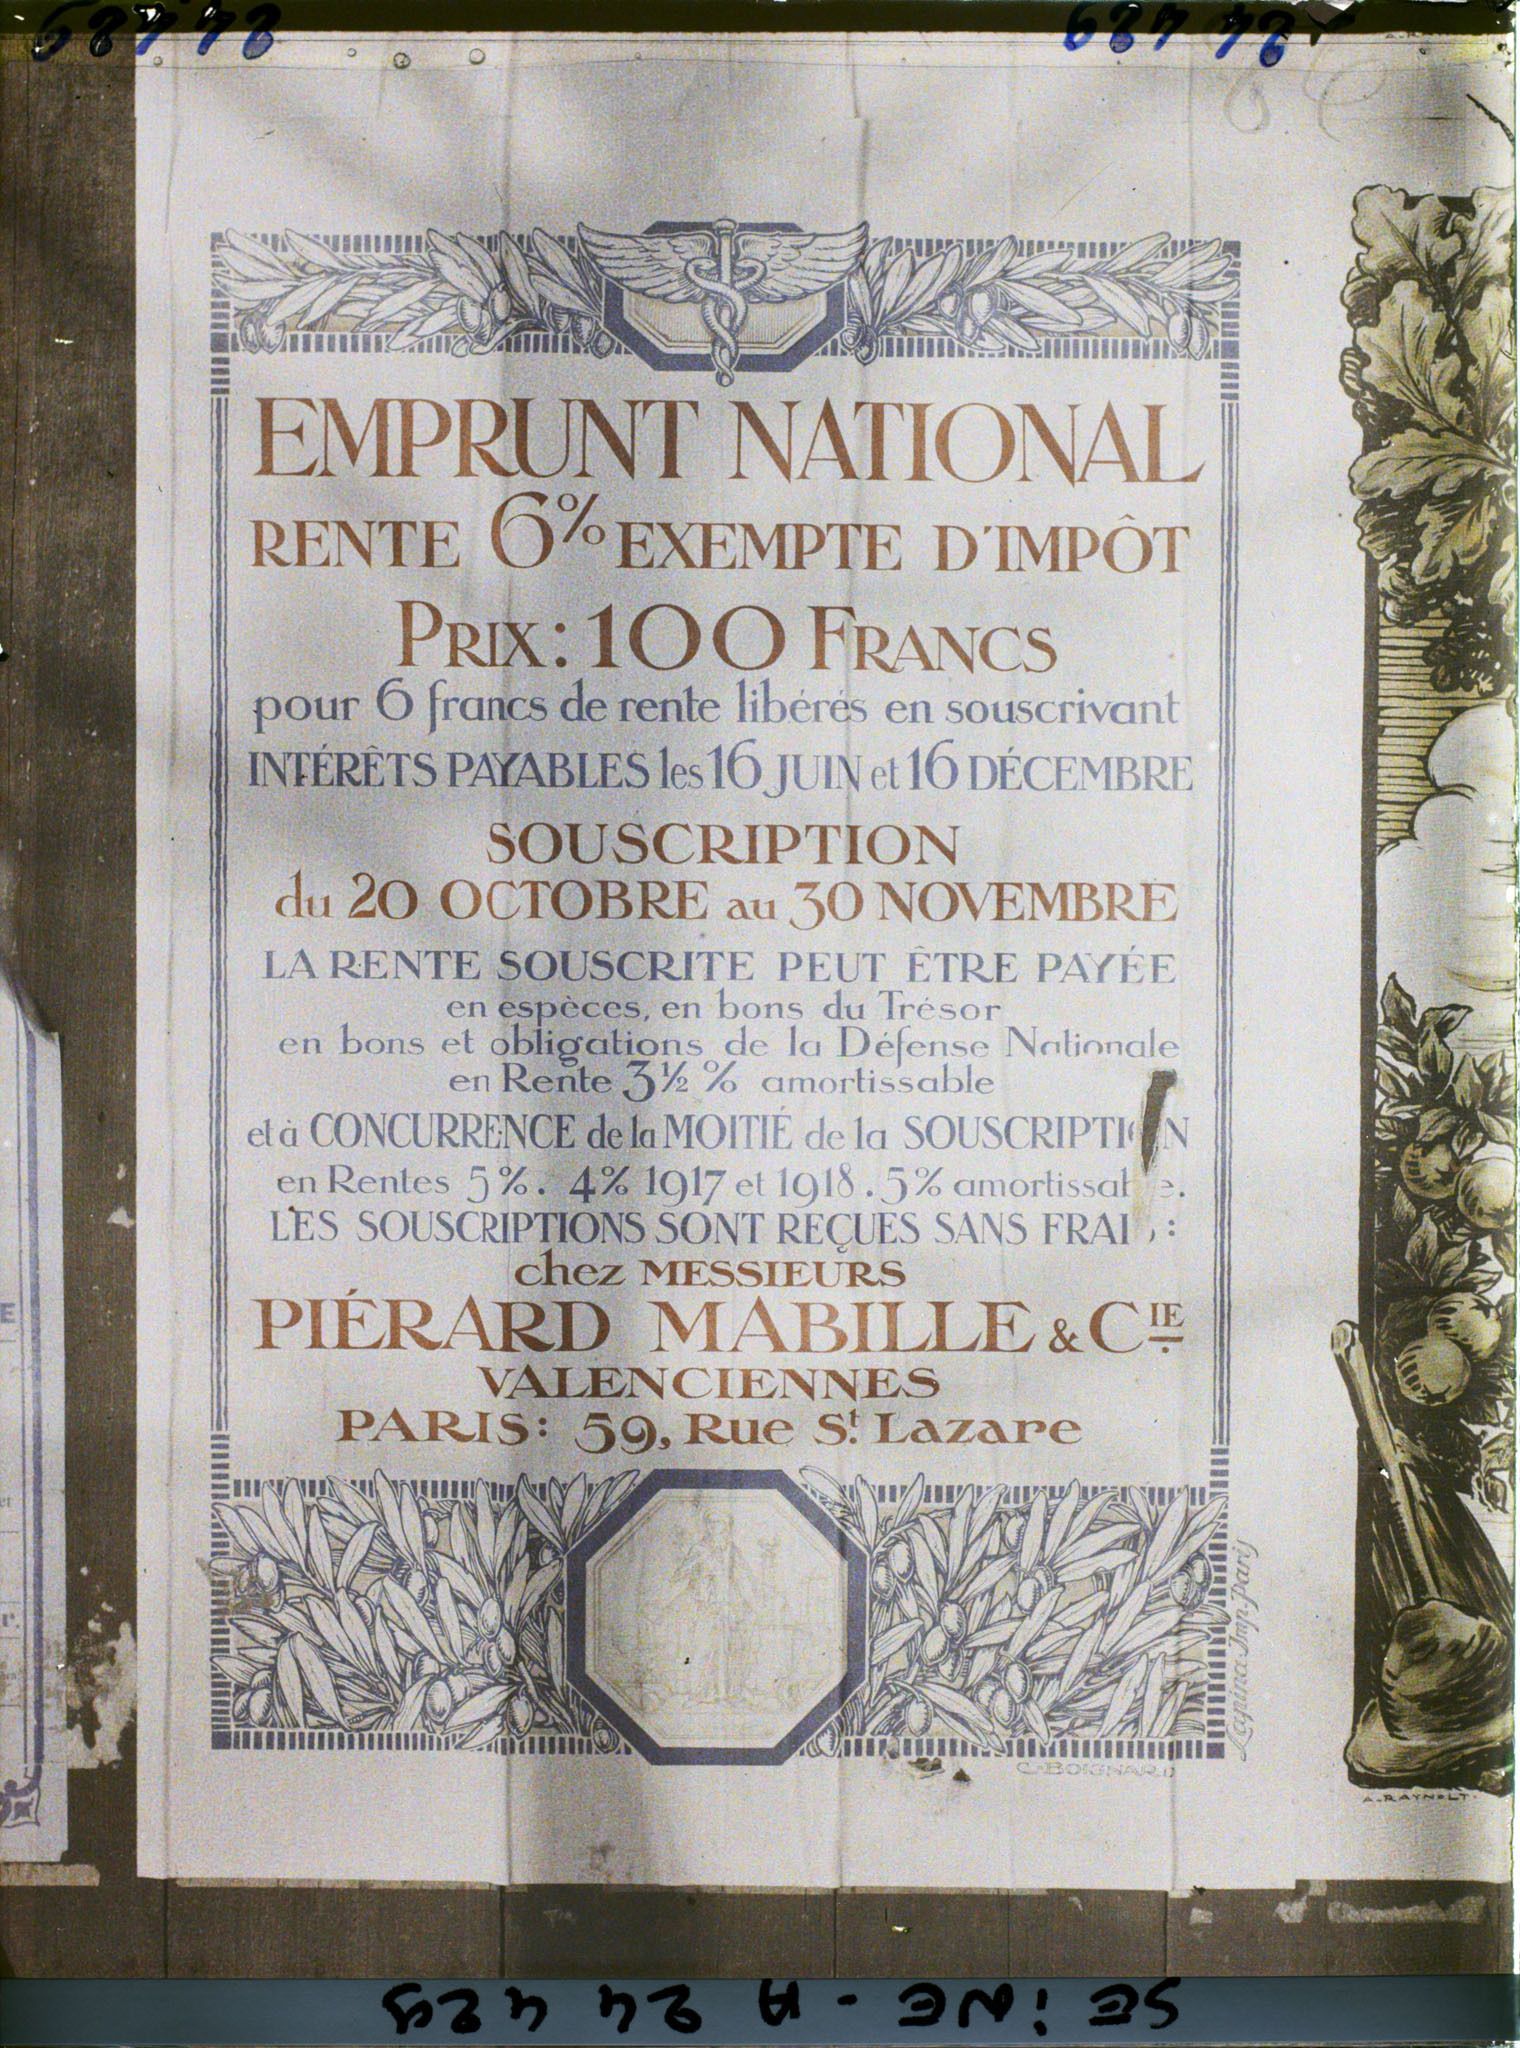 EMPRUNT NATIONAL
RENTE 6% EXEMPTE D'IMPÔT
PRIX: 100 FRANCS
pour 6 francs de rente libérés en souscrivant
INTÉRÊTS PAYABLES les 16 JUIN et 16 DÉCEMBRE
SOUSCRIPTION
du 20 OCTOBRE au 30 NOVEMBRE
LA RENTE SOUSCRITE PEUT ÊTRE PAYÉE
en espèces, en bons du Trésor
en bons et obligations de la Défense Nationale
en Rente 3½ % amortissable
et à CONCURRENCE de la MOITIÉ de la SOUSCRIPTION
en Rentes 5%. 4% 1917 et 1918. 5% amortissable.
LES SOUSCRIPTIONS SONT REÇUES SANS FRAIS:
chez MESSIEURS
PIÉRARD MABILLE & CIE
VALENCIENNES
PARIS: 59, Rue St. Lazare
Lapina Imp. Paris
C. BOIGNARD
A. RAYNOLT.
SEiNE - A 24 429